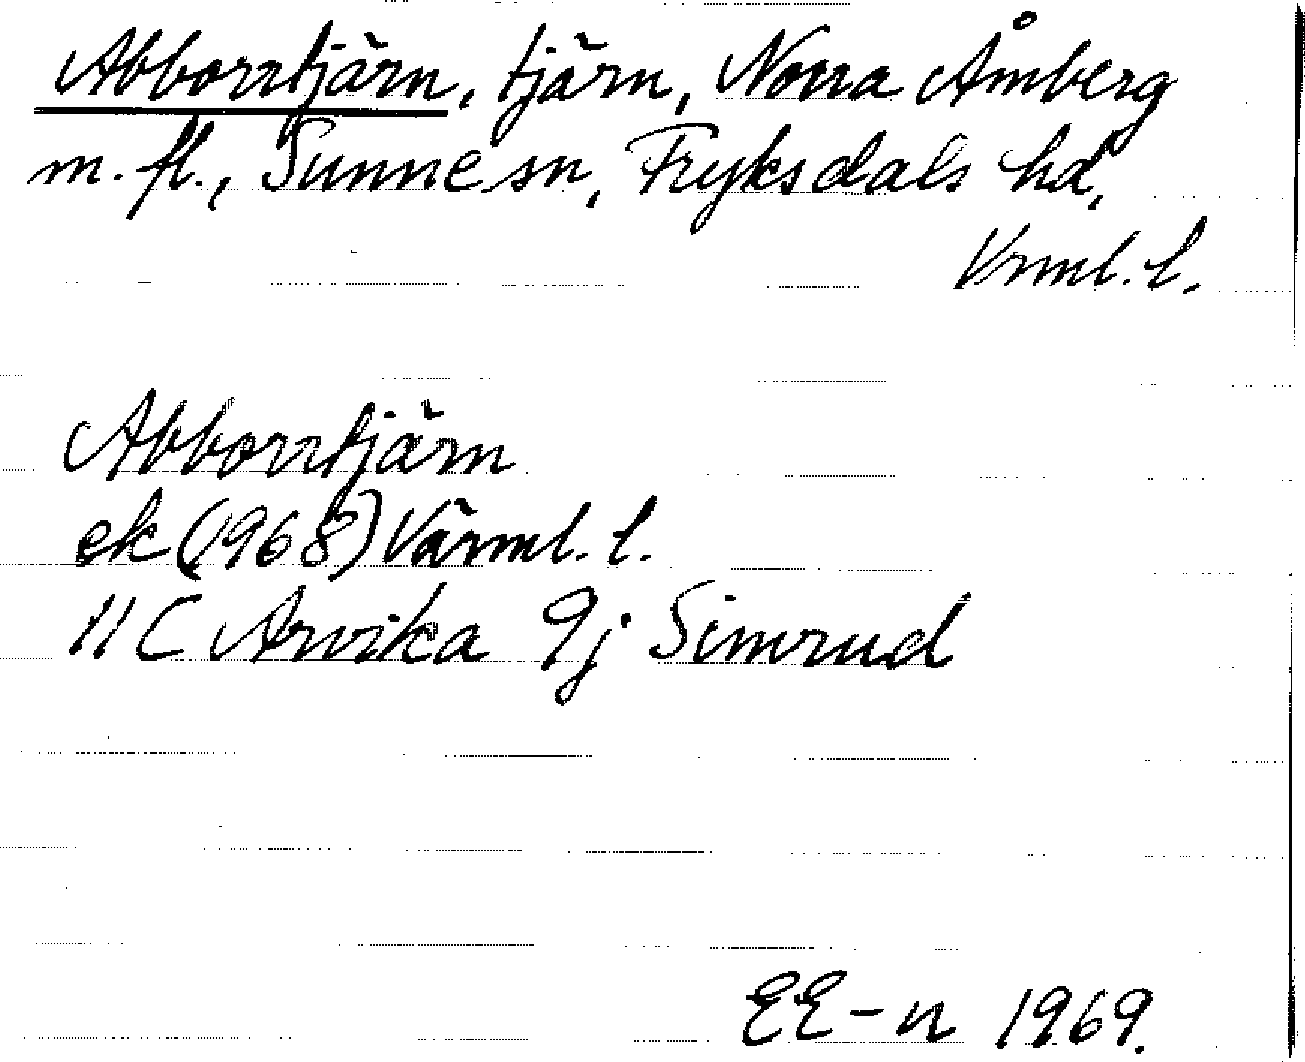 Abborrtjärn, tjärn, Norra Åmberg
m. fl., Sunne sn, Fryksdals hd,
Vrml. l.
Abborrtjärn
ek (1968) Värml. l.
11 C Arvika 9j Simrud
EE-n 1969.